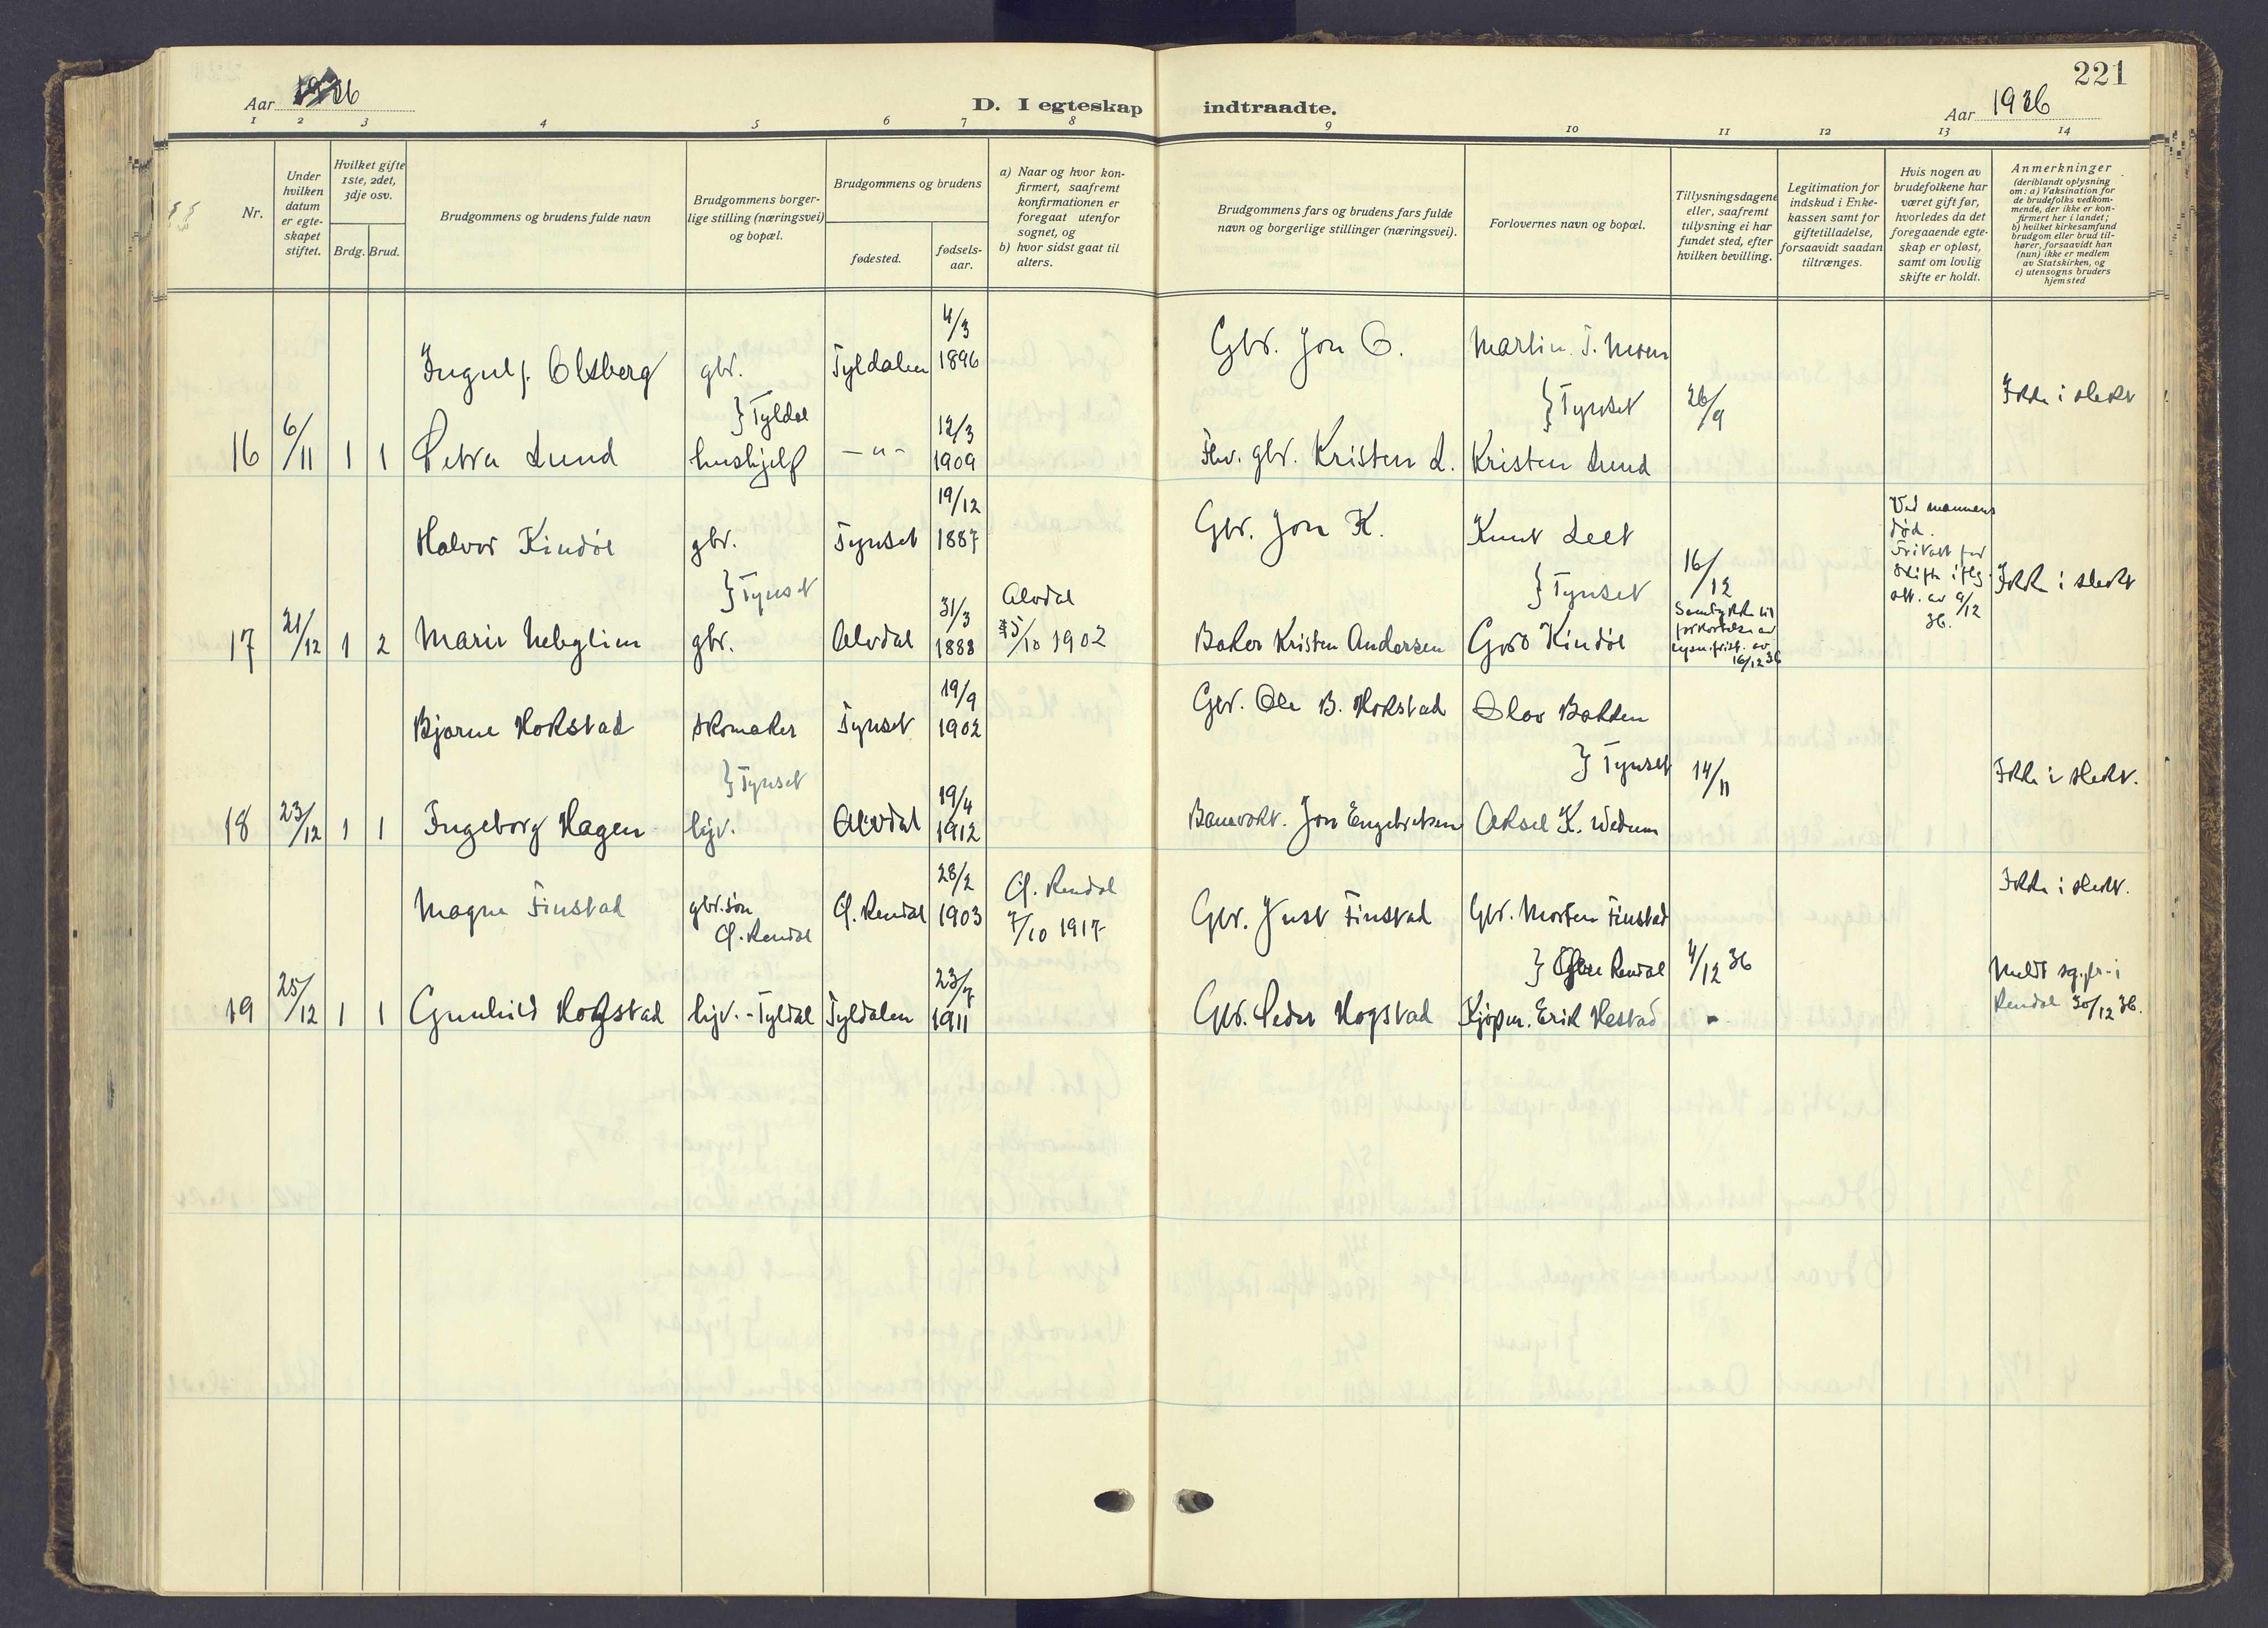 Aar 1936
D. I egteskap indtraadte.
221
Aar 1936
1 2 3 4 5 6 7 8 9 10 11 12 13 14
Nr.
Under hvilken datum er egteskapet stiftet.
Hvilket gifte 1ste, 2det, 3dje osv.
Brdg. Brud.
Brudgommens og brudens fulde navn
Brudgommens borgerlige stilling (næringsvei) og bopæl.
Brudgommens og brudens
fødested.
fødselsaar.
a) Naar og hvor konfirmert, saafremt konfirmationen er foregaat utenfor sognet, og
b) hvor sidst gaat til alters.
Brudgommens fars og brudens fars fulde navn og borgerlige stillinger (næringsvei).
Forlovernes navn og bopæl.
Tillysningsdagene eller, saafremt tillysning ei har fundet sted, efter hvilken bevilling.
Legitimation for indskud i Enkekassen samt for giftetilladelse, forsaavidt saadan tiltrænges.
Hvis nogen av brudefolkene har været gift før, hvorledes da det foregaaende egteskap er opløst, samt om lovlig skifte er holdt.
Anmerkninger
(deriblandt oplysning om: a) Vaksination for de brudefolks vedkommende, der ikke er konfirmert her i landet;
b) hvilket kirkesamfund brudgom eller brud tilhører, forsaavidt han (hun) ikke er medlem av Statskirken, og
c) utensogns bruders hjemsted
Ingulf Olsberg gbr. Tyldalen 4/3 1896 Gbr. Jon O. Martin T. Moen
} Tyldal } Tynset 26/9 Ikke i slekt
16 6/11 1 1 Petra Lund hushjelp —„— 12/3 1909 Fhv. gbr. Kristen L. Kristen Lund
Halvor Kindøl gbr. Tynset 19/12 1887 Gbr. Jon K. Knut Leet
} Tynset } Tynset 16/12 Ved mannens død. Fritatt for skifte iflg. att. av 9/12 36. Ikke i slekt
17 21/12 1 2 Marie Nebylien gbr. Alvdal 31/3 1888 Alvdal 5/10 1902 Baker Kristen Andersen Goro Kindøl Samtykke til forkortelse av lysn.frist. av 16/12 36
Bjarne Hokstad skomaker Tynset 19/9 1902 Gbr. Ole B. Hokstad Olav Bakken
} Tynset } Tynset 14/11 Ikke i slekt.
18 23/12 1 1 Ingeborg Hagen hjv. Alvdal 19/4 1912 Banevokt. Jon Engebretsen Aksel K. Wedum
Magne Finstad gbr.søn Ø. Rendal Ø. Rendal 28/2 1903 Ø. Rendal 7/10 1917 Gbr. Just Finstad Gbr. Morten Finstad Ikke i slekt.
} Øvre Rendal 4/12 36
19 25/12 1 1 Gunhild Hogstad hjv. - Tyldal Tyldalen 23/7 1911 Gbr. Peder Hogstad Kjøpm. Erik Hestad Meldt sg.pr. i Rendal 30/12 36.